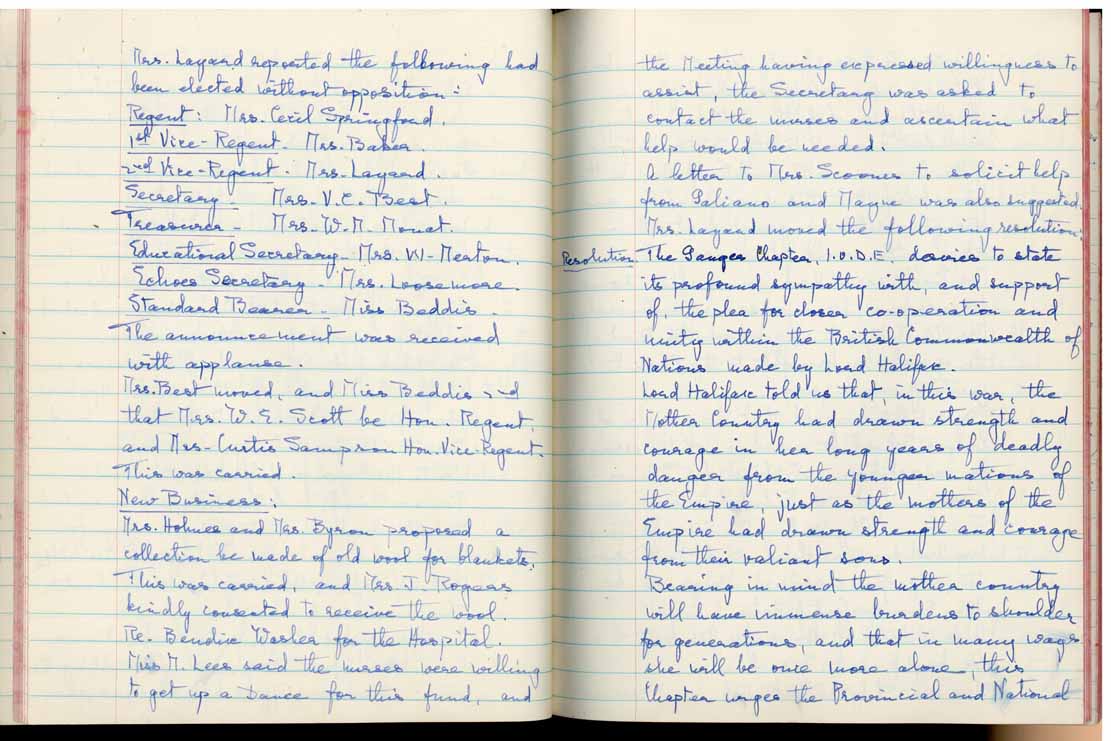 Mrs. Layard reported the following had
been elected without opposition:-
Regent: Mrs. Cecil Springford.
1st Vice-Regent. Mrs. Baker.
2nd Vice-Regent. Mrs. Layard.
Secretary - Mrs. V.C. Best.
Treasurer - Mrs. W.M. Mouat.
Educational Secretary - Mrs. W. Norton.
Echoes Secretary - Mrs. Loosemore.
Standard Bearer - Miss Beddis.
The announcement was received
with applause.
Mrs. Best moved, and Miss Beddis 2nd
that Mrs. W. E. Scott be Hon. Regent,
and Mrs. Curtis Sampson Hon. Vice-Regent.
This was carried.
New Business:
Mrs. Holmes and Mrs. Byron proposed a
collection be made of old wool for blankets.
This was carried, and Mrs. J. Rogers
kindly consented to receive the wool.
Re. Bendix Washer for the Hospital.
Miss M. Lees said the nurses were willing
to get up a Dance for this fund, and
the Meeting having expressed willingness to
assist, the Secretary was asked to
contact the nurses and ascertain what
help would be needed.
A letter to Mrs. Scoones to solicit help
from Galiano and Mayne was also suggested.
Mrs. Layard moved the following resolution:
Resolution The Ganges Chapter, I.O.D.E. desires to state
its profound sympathy with, and support
of, the plea for closer co-operation and
unity within the British Commonwealth of
Nations made by Lord Halifax.
Lord Halifax told us that, in this war, the
Mother Country had drawn strength and
courage in her long years of deadly
danger from the younger nations of
the Empire, just as the mothers of the
Empire had drawn strength and courage
from their valiant sons.
Bearing in mind the mother country
will have immense burdens to shoulder
for generations, and that in many ways
she will be once more alone, this
Chapter urges the Provincial and National